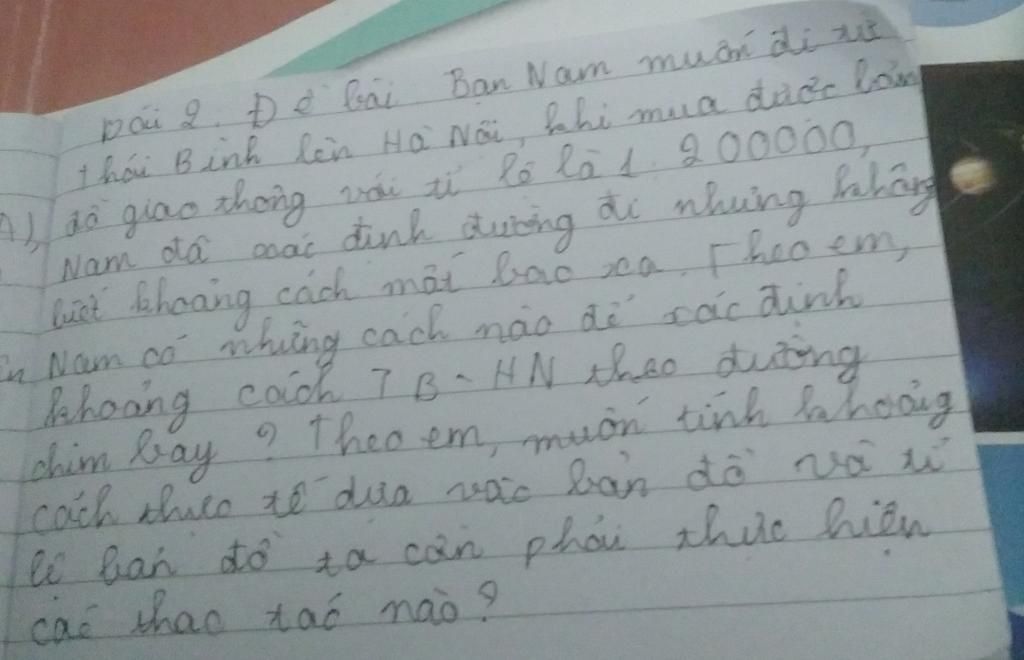 Bài 2. Đề bài Bạn Nam muốn đi từ
thái Bình lên Hà Nội, khi mua được bản
đồ giao thông với tỉ lệ là 1. 200000,
Nam đã xác định đường đi nhưng không
biết khoảng cách mất bao xa. Theo em,
Nam có những cách nào để xác định
khoảng cách TB - HN theo đường
chim bay? Theo em, muốn tính khoảng
cách thực tế dựa vào bản đồ và tỉ
lệ bản đồ ta cần phải thực hiện
các thao tác nào?